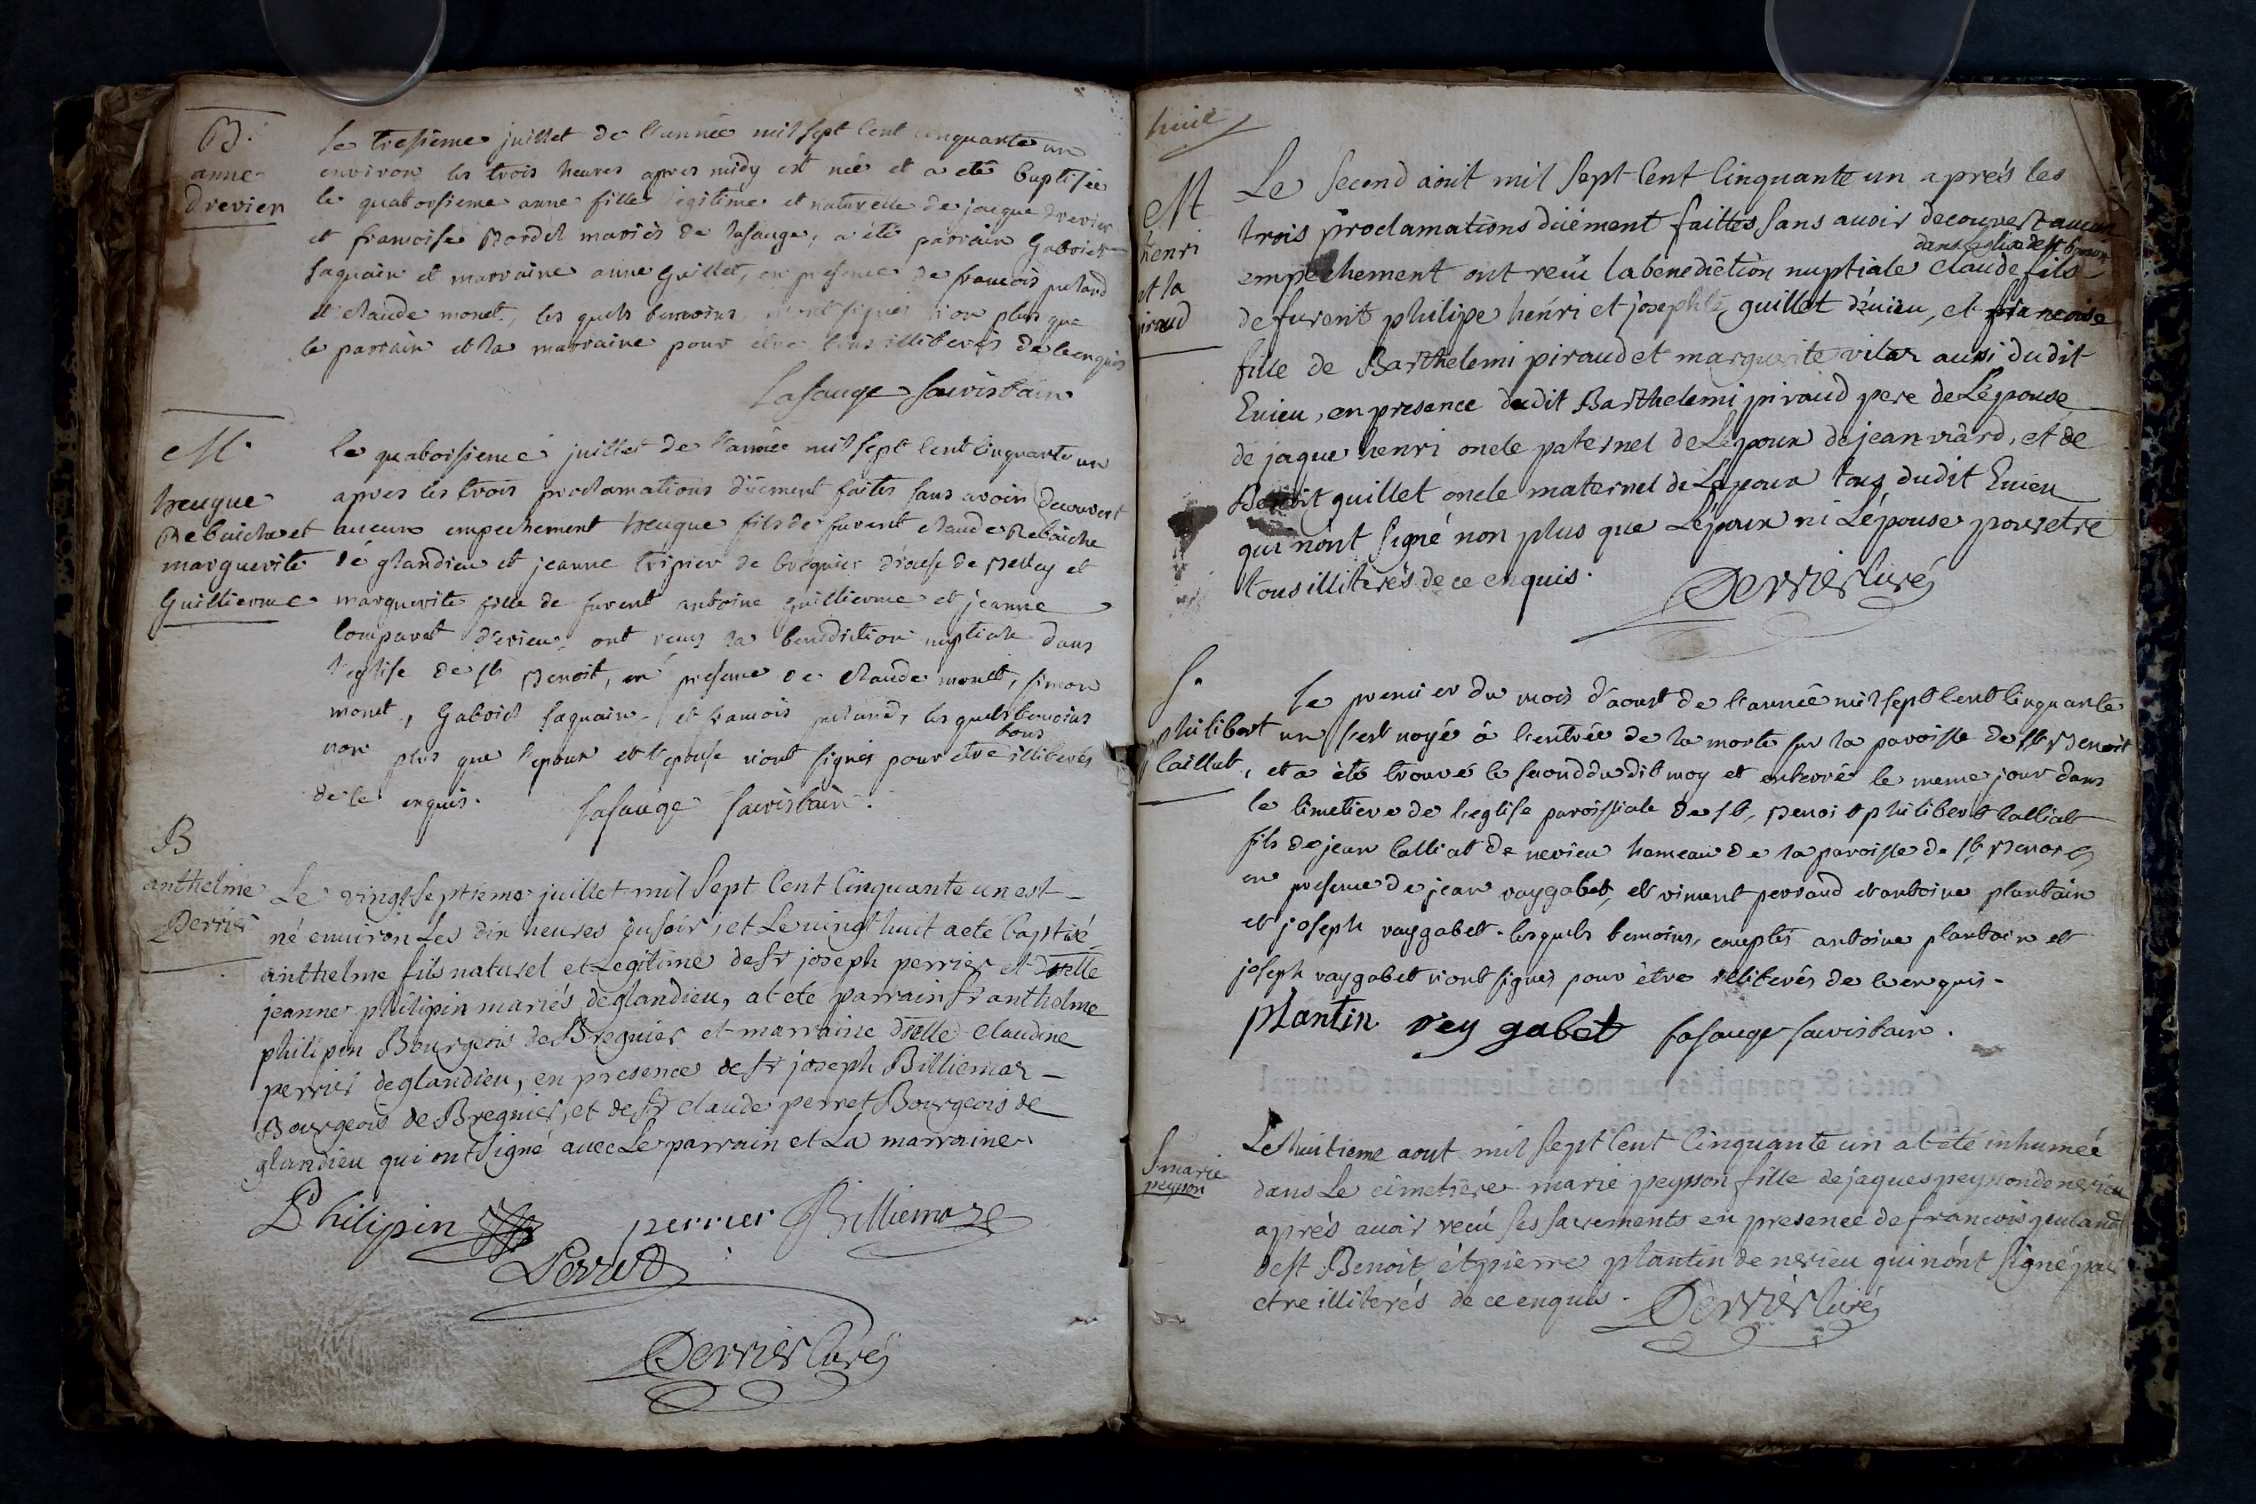 B.
anne
drevier
Le tresieme juillet de l'année mil sept cent cinquante un
environ les trois heures apres midy est née et a eté baptisée
le quatorsieme anne fille legitime et naturelle de jacque drevier
et francoise Bordel mariés de lasauge, a été parrain Gabriel
saquain et marraine anne guillet, en presence de francois puland
et claude monet, les quels temoins n'ont signés non plus que
le parrain et la marraine pour etre tous illiterés de ce enquis
Lasauge sacristain
M.
heugue
Rebaiche et
marguerite
Guillierme
le quatorsieme juillet de l'année mil sept cent cinquante un
apres les trois proclamations düement faites sans avoir decouvert
aucun empechement heugue fils de furent claude Rebaiche
de glandieu et jeanne tripier de bregnier diocese de Belley et
marguerite fille de furent antoine guillierme et jeanne
comparet d'evieu, ont reçus la benediction nuptiale dans
l'eglise de st Benoit, en presence de claude monet, simon
monet, Gabriel saquain et francois puland, les quels temoins
non plus que l'epoux et l'epouse n'ont signés pour etre tous illiterés
de ce enquis. Lasauge sacristain.
B
anthelme
Perrier
Le vingt septieme juillet mil sept cent cinquante un est
né environ Les dix heures du soir, et Le vingt huit a eté baptisé
anthelme fils naturel et Legitime de sr joseph perrier et dlle
jeanne philipin mariés de glandieu, at ete parrain sr anthelme
philipin Bourgeois de Bregnier et marraine dlle claudine
perrier de glandieu, en presence de sr joseph Billiemaz
Bourgeois de Bregnier, et de sr claude perret Bourgeois de
glandieu qui ont signé avec Le parrain et La marraine
Philipin perrier Billiemaze
Perret
Perrier curé
huit
M
henri
et la
piraud
Le second aoüt mil sept cent cinquante un aprés les
trois proclamations düement faittes sans avoir decouvert aucun
dans leglise de st benoit
empechement ont reçu la benediction nuptiale claude fils
de furent philipe henri et josephte guillet d'evieu, et francoise
fille de Barthelemi piraud et marguerite vitoz aussi dudit
Evieu, en presence dudit Barthelemi piraud pere de Lépouse
de jaque henri oncle paternel de Lepoux de jean viard, et de
Benoit guillet oncle maternel de Lepoux tous dudit Evieu
qui n'ont signé non plus que Lépoux ni Lépouse pour etre
tous illiterés de ce enquis.
Perrier curé
S.
philibert
Caillat,
Le premier du mois d'aoust de l'année mil sept cent cinquante
un s'est noyé à l'entrée de la morte sur la paroisse de st Benoit
et a été trouvé le second du dit moy et enterré le meme jour dans
le cimetiere de l'eglise paroissiale de st, Benoit philibert calliat
fils de jean calliat de nevieu hameau de la paroisse de st Benoit
en presence de jean raygabet, et vincent perraud et antoine plantain
et joseph raygabet. lesquels temoins, exceptés antoine plantain et
joseph raygabet n'ont signés pour être illiterés de ce enquis.
plantin rey gabet Lasauge sacristain.
S marie
peyson
Le huitieme aout mil sept cent cinquante un at eté inhumeé
dans Le cimetiere marie peysson fille de jaques peysson de nevieu
aprés avoir reçu ses sacrements en presence de francois puland
de st Benoit et pierre plantin de nevieu qui n'ont signé pour
etre illiterés de ce enquis. Perrier curé